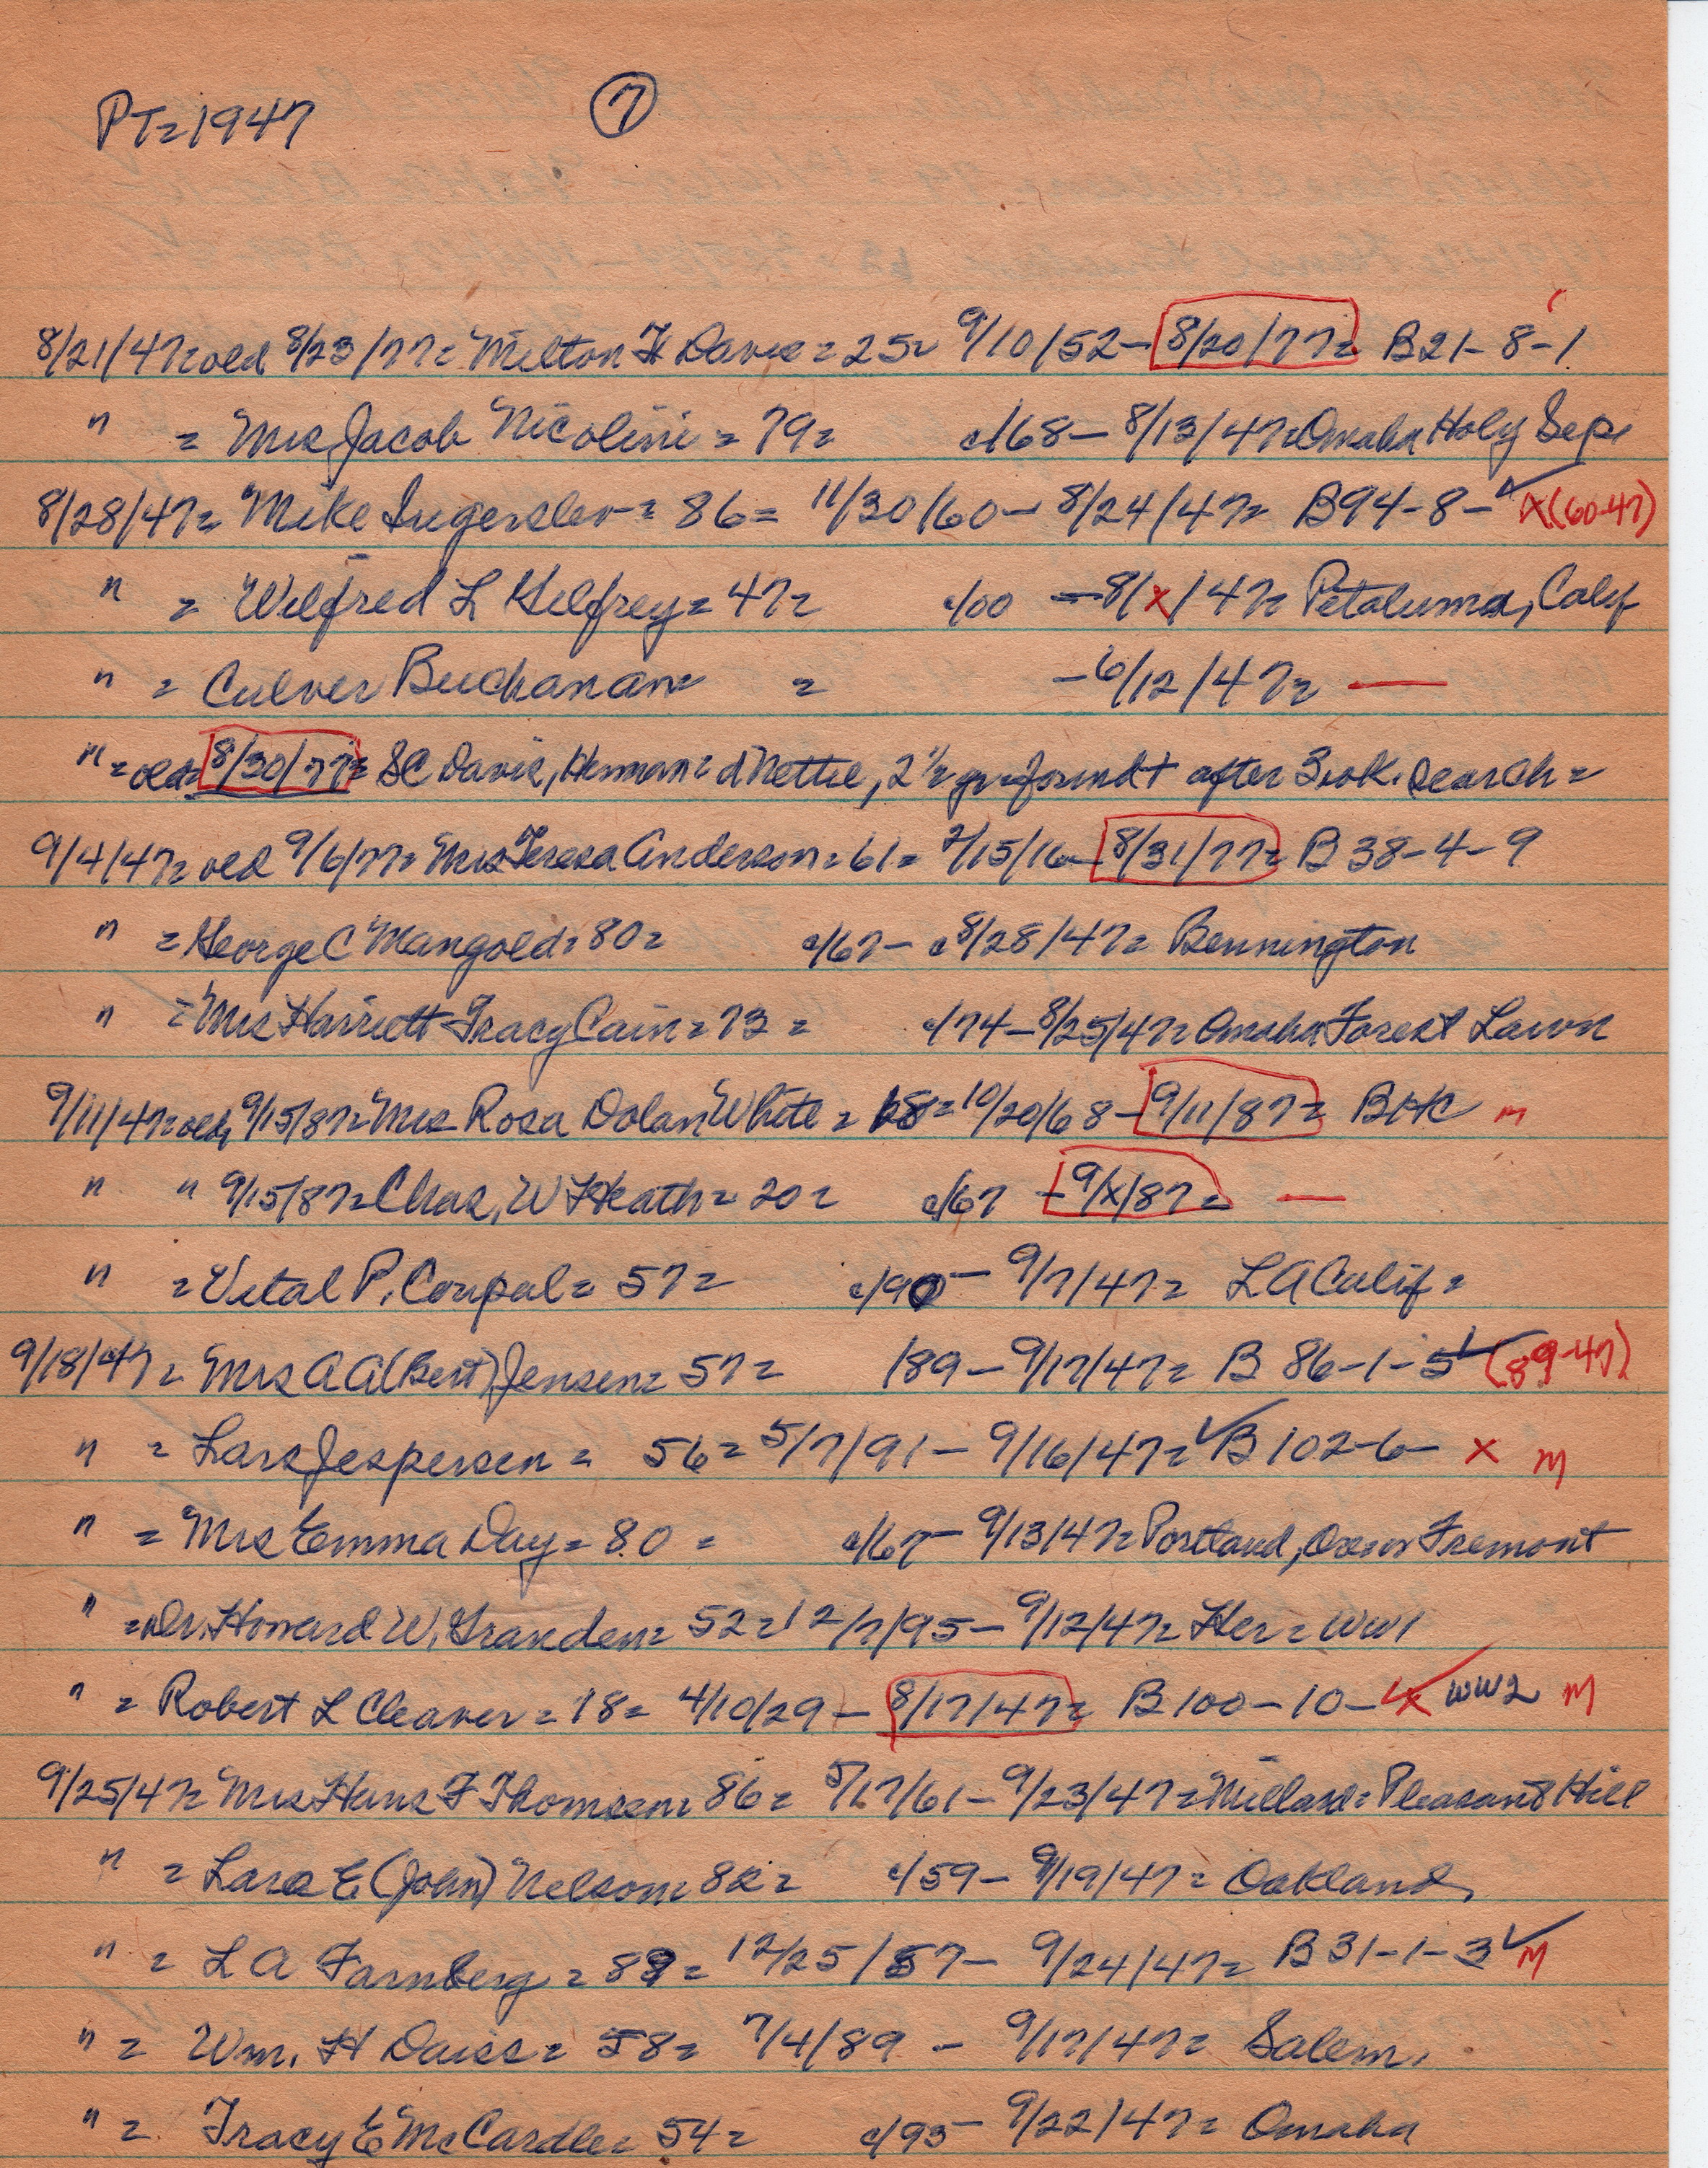 PT=1947 7
8/21/47= old 8/23/77= Milton H Davis = 25= 9/10/52 - 8/20/77= B21-8-1
" = Mrs Jacob Nicolini = 79= c/68 - 8/13/47= Omaha Holy Sep.
8/28/47= Mike Ingerslev = 86= 11/30/60 - 8/24/47= B94-8- x (60-47)
" = Wilfred L Gelfrey = 47= c/00 - 8/x/47= Petaluma, Calif
" = Culver Buchanan= = - 6/12/47= —
" = old= 8/30/77= SC Davis, Herman= d Nettie, 2 1/2 yr= found + after 3 wk. search =
9/4/47= old 9/6/77= Mrs Teresa Anderson = 61= 2/15/16 - 8/31/77= B 38-4-9
" = George C Mangold = 80= c/67 - 8/28/47= Bennington
" = Mrs Harriett Tracy Cain = 73 = c/74 - 8/25/47= Omaha Forest Lawn
9/11/47= old, 9/15/87= Mrs Rosa Dolan White = 18= 10/20/68 - 9/11/87= BHC m
" " 9/15/87= Chas. W Heath = 20= c/67 - 9/x/87= —
" = Vital P. Coupal = 57= c/90 - 9/7/47= LA Calif =
9/18/47 = Mrs A A (Bert) Jensen= 57= /89 - 9/17/47= B 86-1-5 (89-47)
" = Lars Jespersen = 56= 5/7/91 - 9/16/47= B 102-6- x m
" = Mrs Emma Day = 80 = c/67 - 9/13/47= Portland, Ore or Fremont
" = Dr. Howard W. Granden= 52=12/7/95 - 9/12/47= Her = WW1
" = Robert L Cleaver = 18= 4/10/29 - 8/17/47= B 100-10- x WW2 m
9/25/47= Mrs Hans F Thomsen= 86= 5/17/61 - 9/23/47= Millard= Pleasant Hill
" = Lars E (John) Nelson= 88= c/59 - 9/19/47= Oakland,
" = L A Farnberg = 89= 12/25/57 - 9/24/47= B 31-1-3 m
" = Wm. H Daiss= 58= 7/4/89 - 9/17/47= Salem.
" = Tracy E McCardle= 54= c/93 - 9/22/47= Omaha